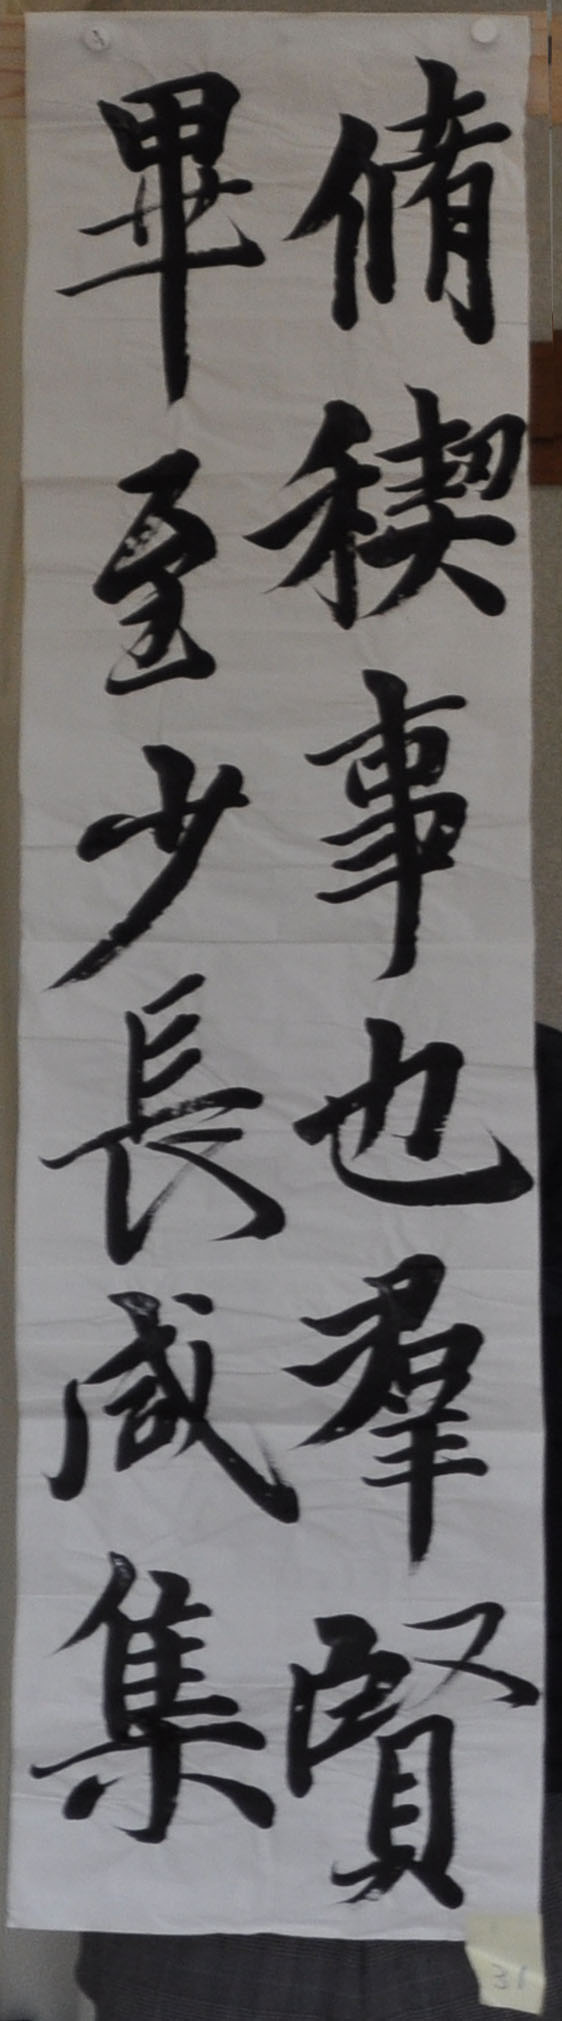 脩稧事也羣賢
畢至少長咸集
31